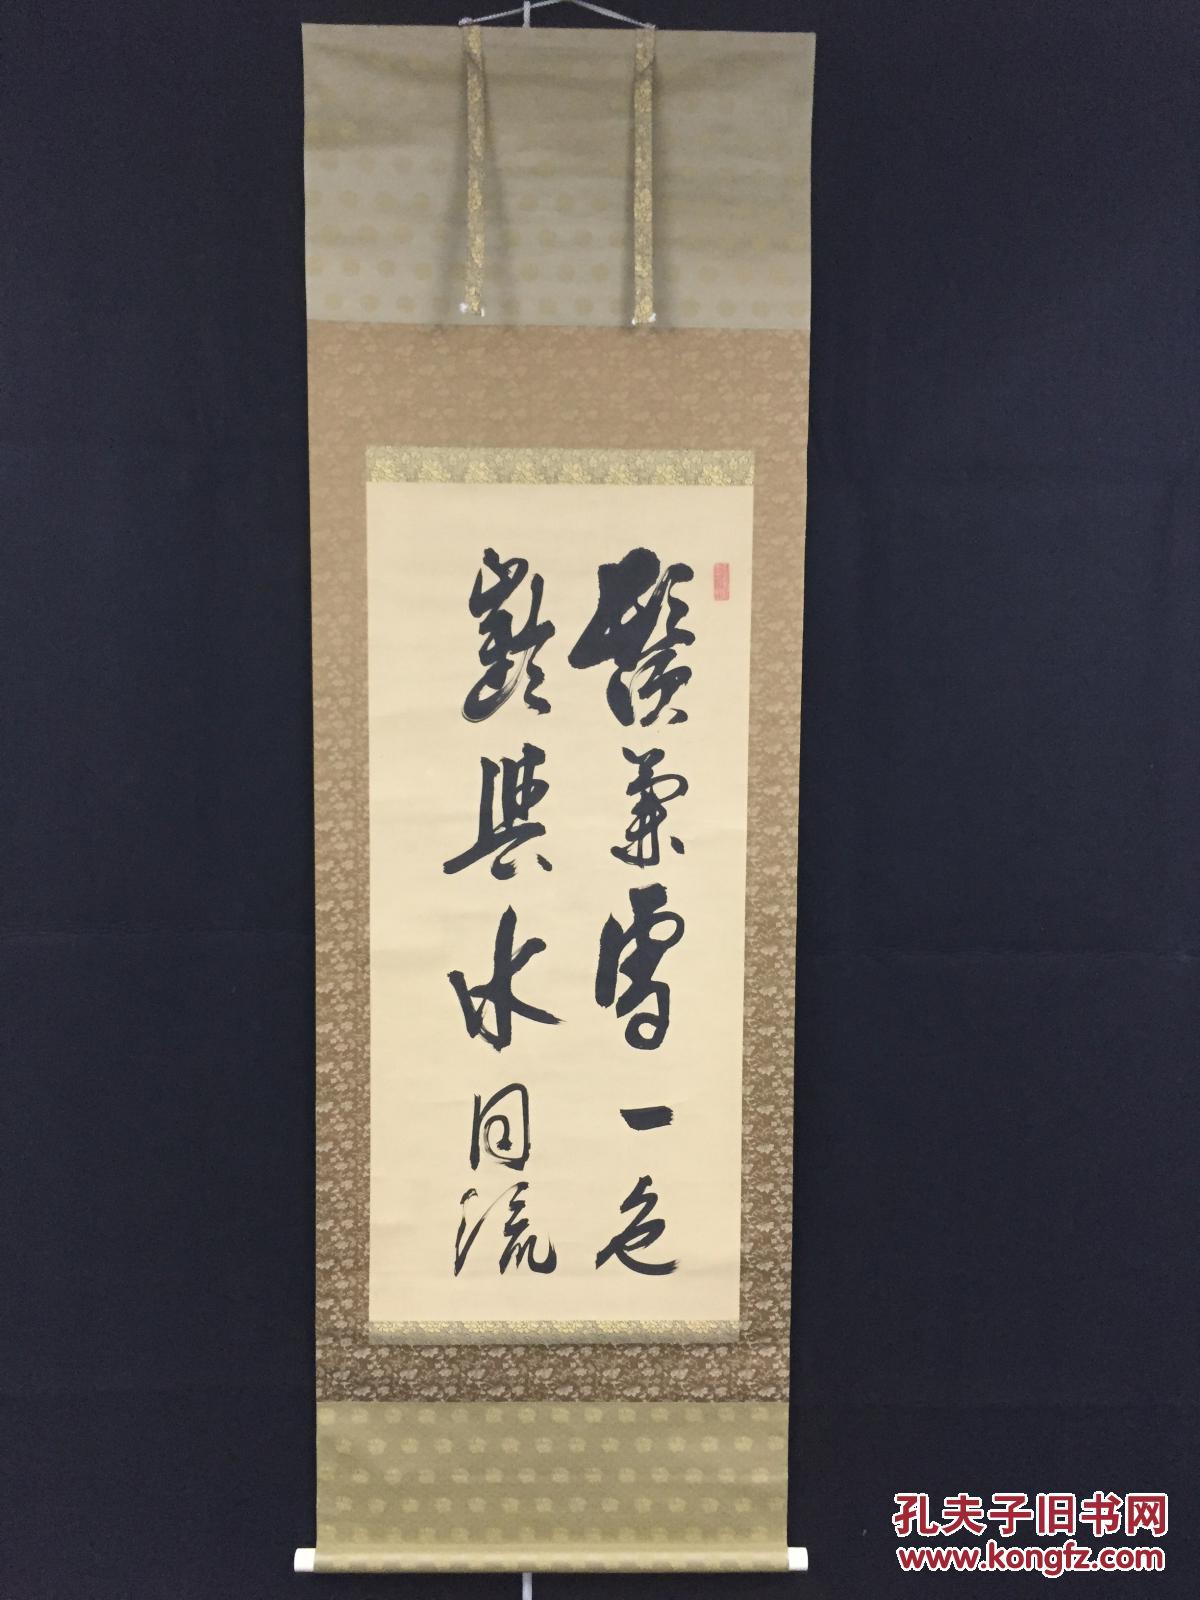 鬢兼雪一色
歡與水同流
孔夫子旧书网
www.kongfz.com